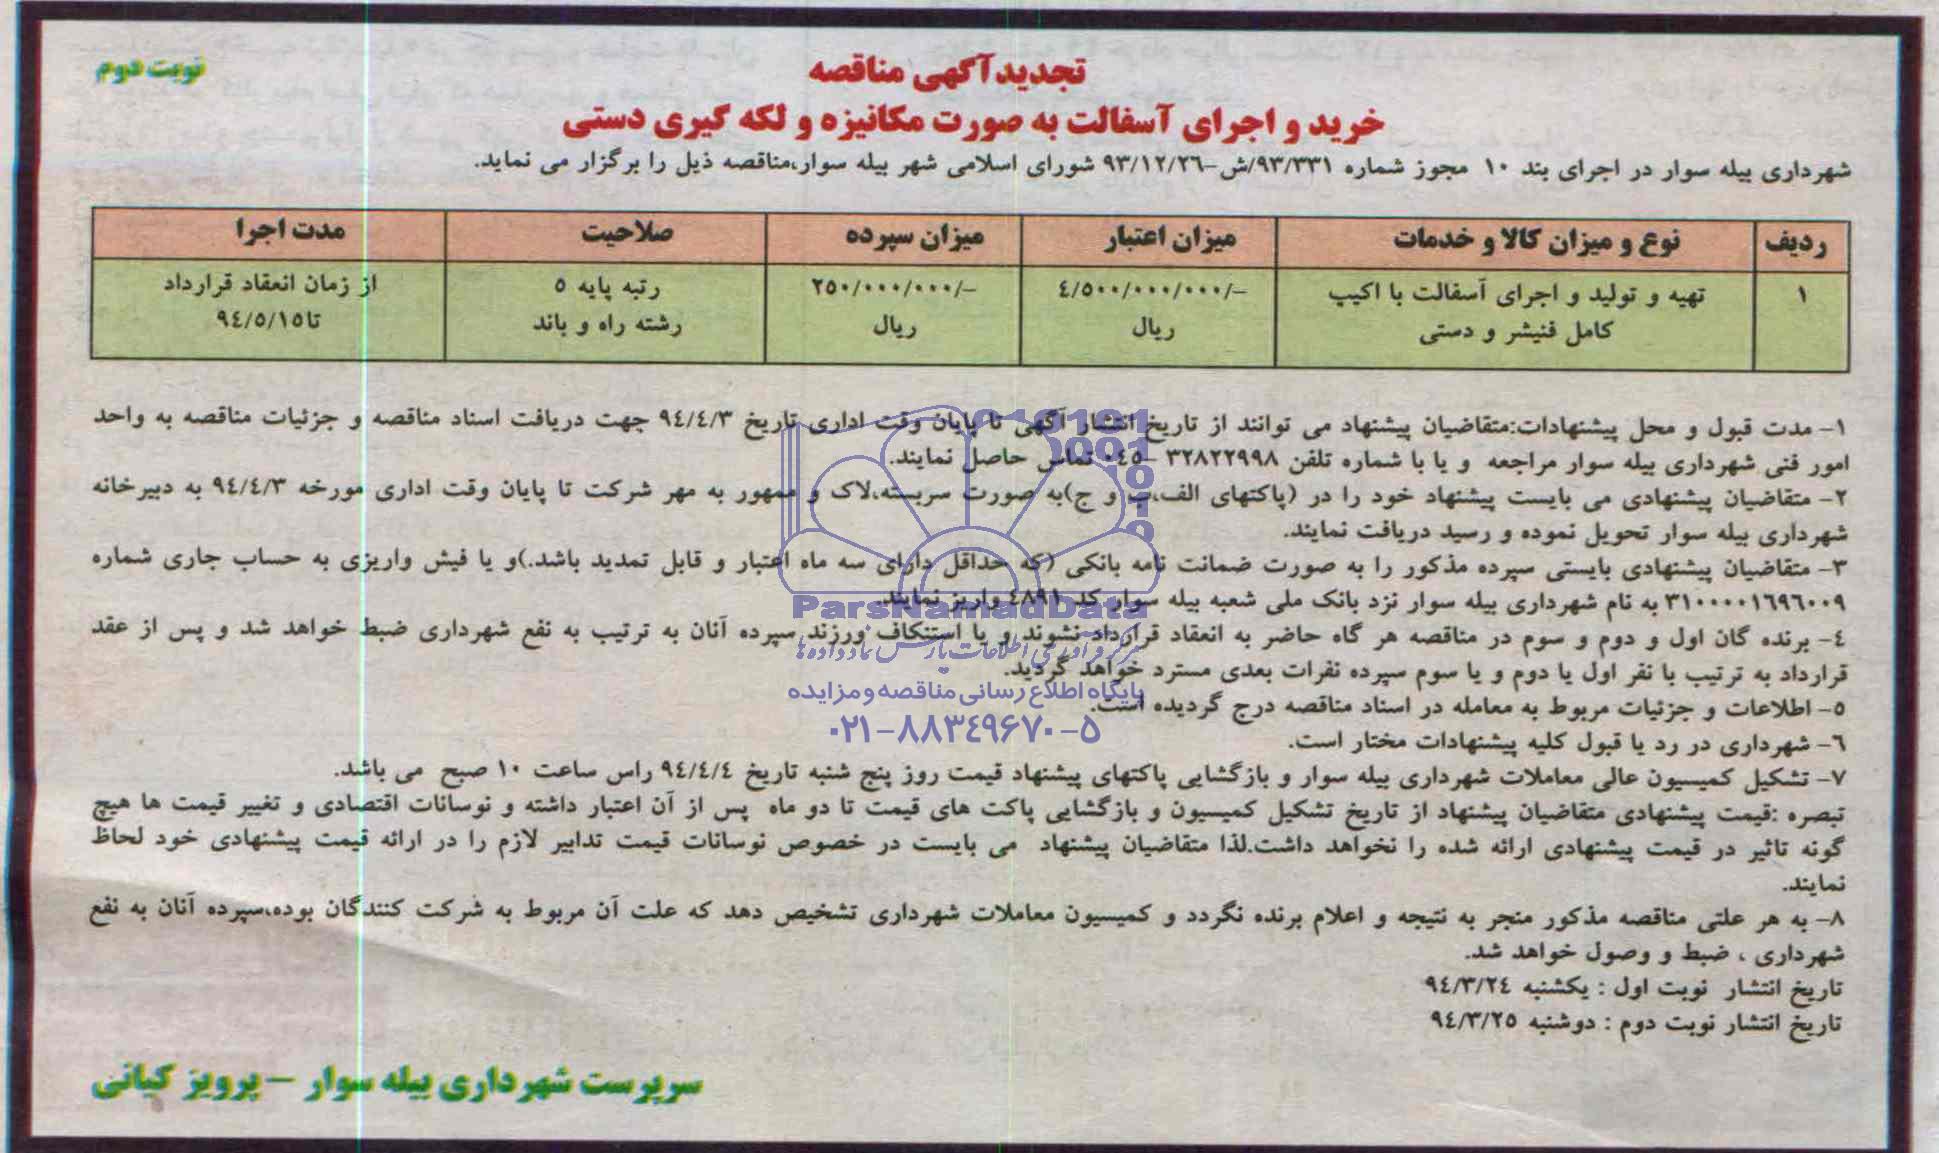 نوبت دوم
تجدیدآگهی مناقصه
خرید و اجرای آسفالت به صورت مکانیزه و لکه گیری دستی
شهرداری بیله سوار در اجرای بند ۱۰ مجوز شماره ۹۳/۳۳۱/ش-۹۳/۱۲/۲۶ شورای اسلامی شهر بیله سوار،مناقصه ذیل را برگزار می نماید.
ردیف نوع و میزان کالا و خدمات میزان اعتبار میزان سپرده صلاحیت مدت اجرا
۱ تهیه و تولید و اجرای آسفالت با اکیپ ۴/۵۰۰/۰۰۰/۰۰۰/- ۲۵۰/۰۰۰/۰۰۰/- رتبه پایه ۵ از زمان انعقاد قرارداد
کامل فنیشر و دستی ریال ریال رشته راه و باند تا۹۴/۵/۱۵
۱- مدت قبول و محل پیشنهادات:متقاضیان پیشنهاد می توانند از تاریخ انتشار آگهی تا پایان وقت اداری تاریخ ۹۴/۴/۳ جهت دریافت اسناد مناقصه و جزئیات مناقصه به واحد
امور فنی شهرداری بیله سوار مراجعه و یا با شماره تلفن ۳۲۸۲۲۹۹۸ -۰۴۵ تماس حاصل نمایند.
۲- متقاضیان پیشنهادی می بایست پیشنهاد خود را در (پاکتهای الف،ب و ج)به صورت سربسته،لاک و ممهور به مهر شرکت تا پایان وقت اداری مورخه ۹۴/۴/۳ به دبیرخانه
شهرداری بیله سوار تحویل نموده و رسید دریافت نمایند.
۳- متقاضیان پیشنهادی بایستی سپرده مذکور را به صورت ضمانت نامه بانکی (که حداقل دارای سه ماه اعتبار و قابل تمدید باشد.)و یا فیش واریزی به حساب جاری شماره
۳۱۰۰۰۰۱۶۹۶۰۰۹ به نام شهرداری بیله سوار نزد بانک ملی شعبه بیله سوار کد ۴۸۹۱ واریز نمایند.
۴- برنده گان اول و دوم و سوم در مناقصه هر گاه حاضر به انعقاد قرارداد نشوند و یا استنکاف ورزند سپرده آنان به ترتیب به نفع شهرداری ضبط خواهد شد و پس از عقد
قرارداد به ترتیب با نفر اول یا دوم و یا سوم سپرده نفرات بعدی مسترد خواهد گردید.
۵- اطلاعات و جزئیات مربوط به معامله در اسناد مناقصه درج گردیده است.
۶- شهرداری در رد یا قبول کلیه پیشنهادات مختار است.
۷- تشکیل کمیسیون عالی معاملات شهرداری بیله سوار و بازگشایی پاکتهای پیشنهاد قیمت روز پنج شنبه تاریخ ۹۴/۴/۴ راس ساعت ۱۰ صبح می باشد.
تبصره :قیمت پیشنهادی متقاضیان پیشنهاد از تاریخ تشکیل کمیسیون و بازگشایی پاکت های قیمت تا دو ماه پس از آن اعتبار داشته و نوسانات اقتصادی و تغییر قیمت ها هیچ
گونه تاثیر در قیمت پیشنهادی ارائه شده را نخواهد داشت.لذا متقاضیان پیشنهاد می بایست در خصوص نوسانات قیمت تدابیر لازم را در ارائه قیمت پیشنهادی خود لحاظ
نمایند.
۸- به هر علتی مناقصه مذکور منجر به نتیجه و اعلام برنده نگردد و کمیسیون معاملات شهرداری تشخیص دهد که علت آن مربوط به شرکت کنندگان بوده،سپرده آنان به نفع
شهرداری ، ضبط و وصول خواهد شد.
تاریخ انتشار نوبت اول : یکشنبه ۹۴/۳/۲۴
تاریخ انتشار نوبت دوم : دوشنبه ۹۴/۳/۲۵
سرپرست شهرداری بیله سوار - پرویز کیانی
ParsNamadData
مرکز فرآوری اطلاعات پارس نماد داده ها
پایگاه اطلاع رسانی مناقصه و مزایده
۰۲۱-۸۸۳۴۹۶۷۰-۵